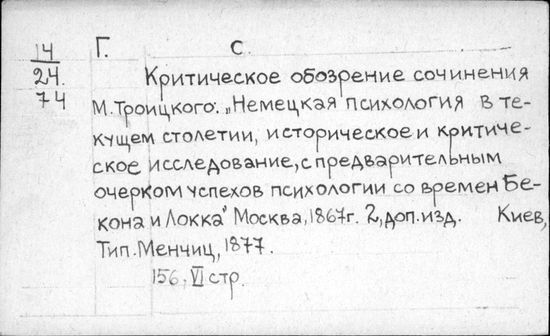 14 Г. С.
24.
74
Критическое обозрение сочинения
М.Троицкого: „Немецкая психология в те-
кущем столетии, историческое и критиче-
ское исследование, с предварительным
очерком успехов психологии со времен Бе-
кона и Локка" Москва, 1867г. 2, доп.изд. Киев,
Тип.Менчиц, 1877.
156, VI стр.